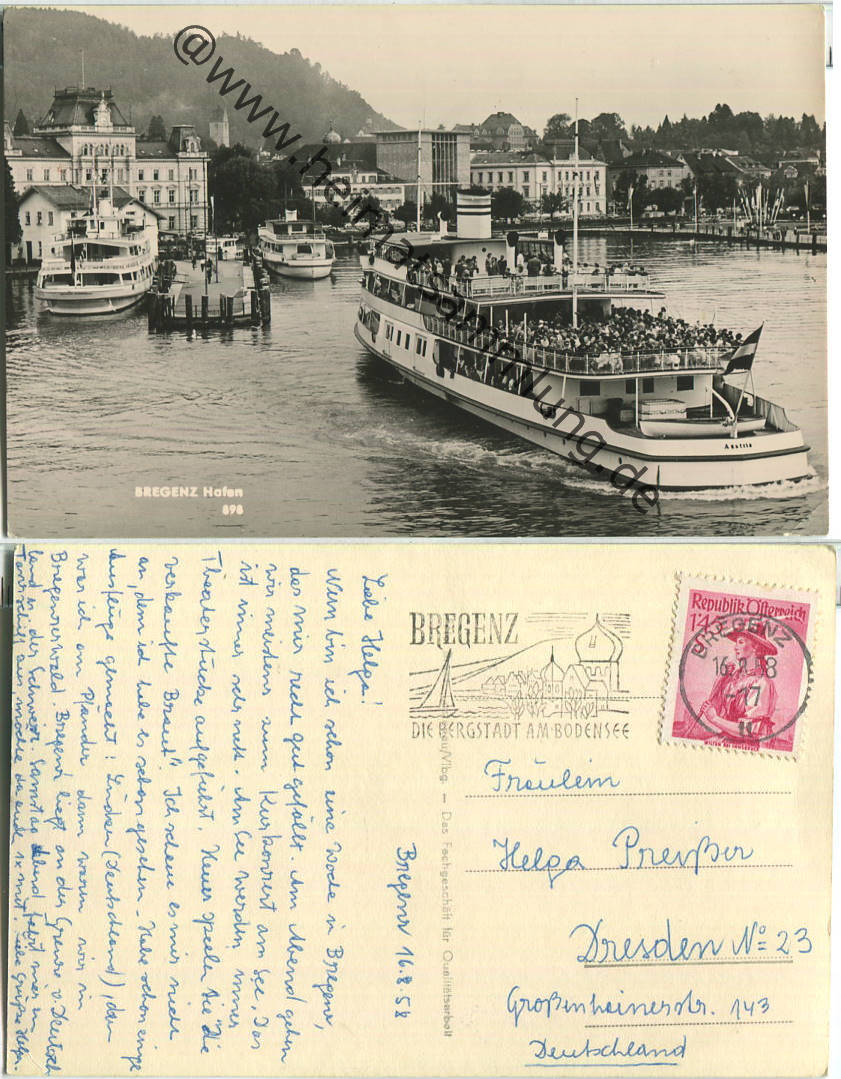 @www.heimatsammlung.de
Austria
BREGENZ Hafen
898
Liebe Helga!
Nun bin ich schon eine Woche in Bregenz,
das mir recht gut gefällt. Am Abend gehen
wir meistens zum Kurkonzert am See. Das
ist immer sehr nett. Am See werden immer
Theaterstücke aufgeführt. Heuer spielen sie "Die
verkaufte Braut". Ich schaue es mir nicht
an, denn ich habe es schon gesehen. Habe schon einige
Ausflüge gemacht: Lindau (Deutschland), dann
war ich am Pfänder dann waren wir im
Bregenzerwald. Bregenz liegt an der Grenze v. Deutsch
land u. der Schweiz. Samstag Abend fährt man ein
Tanzschiff aus, möchte da auch so mit. Liebe Grüße
Bregenz 16.8.58
Das Fachgeschäft für Qualitätsarbeit
BREGENZ
DIE BERGSTADT AM BODENSEE
Republik Österreich
BREGENZ
16.8.58
-17
Fräulein
Helga Preißer
Dresden No 23
Großenhainerstr. 143
Deutschland